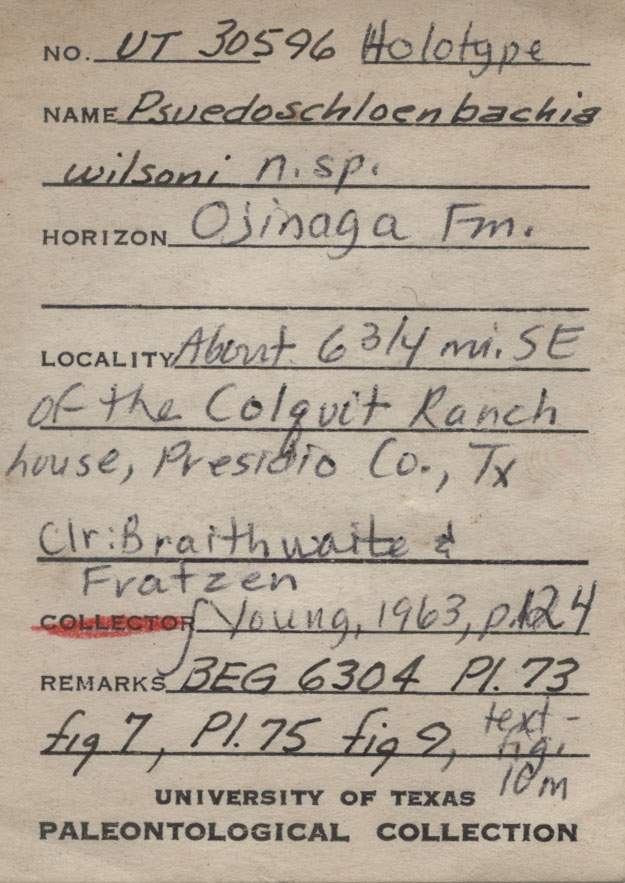 NO. UT 30596 Holotype
NAME Psuedoschloenbachia
wilsoni n.sp.
HORIZON Ojinaga Fm.
LOCALITY About 6 3/4 mi. SE
of the Colquit Ranch
house, Presidio Co., Tx
Clr: Braithwaite &
Fratzen
COLLECTOR Young, 1963, p. 124
REMARKS BEG 6304 Pl. 73
fig 7, Pl. 75 fig 9, text-
fig.
10m
UNIVERSITY OF TEXAS
PALEONTOLOGICAL COLLECTION